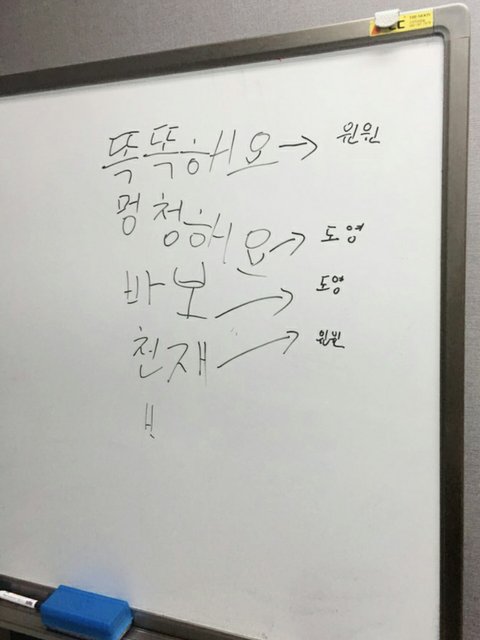 똑똑해요 → 윈윈
멍청해요 → 도영
바보 → 도영
천재 → 윈윈